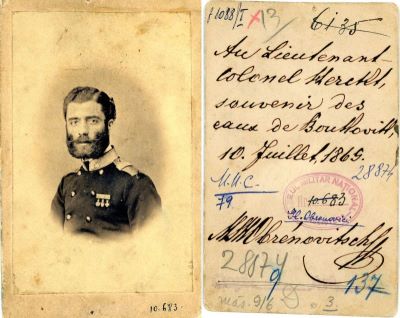 10.683
f1088/I
13
6135
Au Lieutenant-
Colonel Herckt,
souvenir des
eaux de Bouthovitz,
10. Juillet, 1869.
28874
M.M.C
79
MILITAR NATIONAL
10.683
Obrenovici
MMObrénovitsch
28874
9
137
măs. 9/6
3